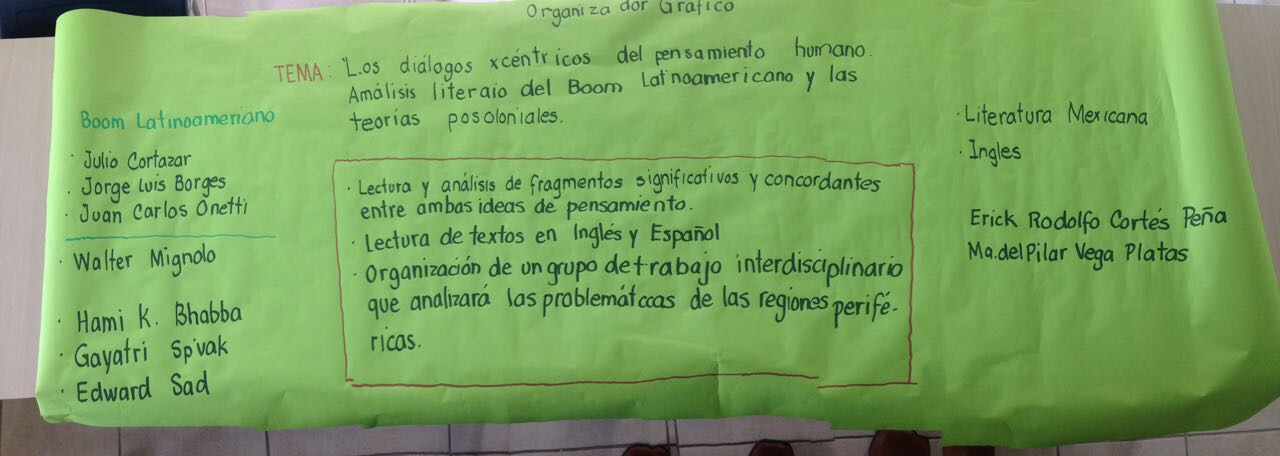 Organizador Gráfico
TEMA: "Los diálogos xcéntricos del pensamiento humano.
Amálisis literaio del Boom Latinoamericano y las
teorías posoloniales.
Boom Latinoameriano
· Julio Cortazar
· Jorge Luis Borges
· Juan Carlos Onetti
· Walter Mignolo
· Hami K. Bhabba
· Gayatri Spivak
· Edward Sad
· Lectura y análisis de fragmentos significativos y concordantes
entre ambas ideas de pensamiento.
· Lectura de textos en Inglés y Español
· Organización de un grupo de trabajo interdisciplinario
que analizará las problemátcas de las regiones perifé-
ricas.
· Literatura Mexicana
· Ingles
Erick Rodolfo Cortés Peña
Ma. del Pilar Vega Platas